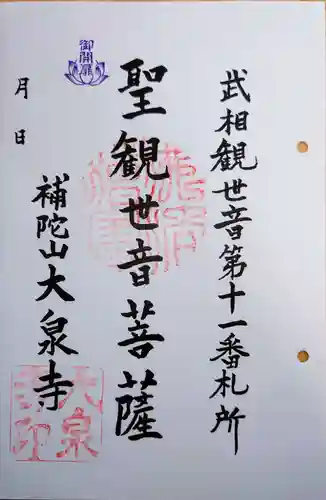 武相観世音第十一番札所
聖観世音菩薩
御開扉
補陀山大泉寺
月日